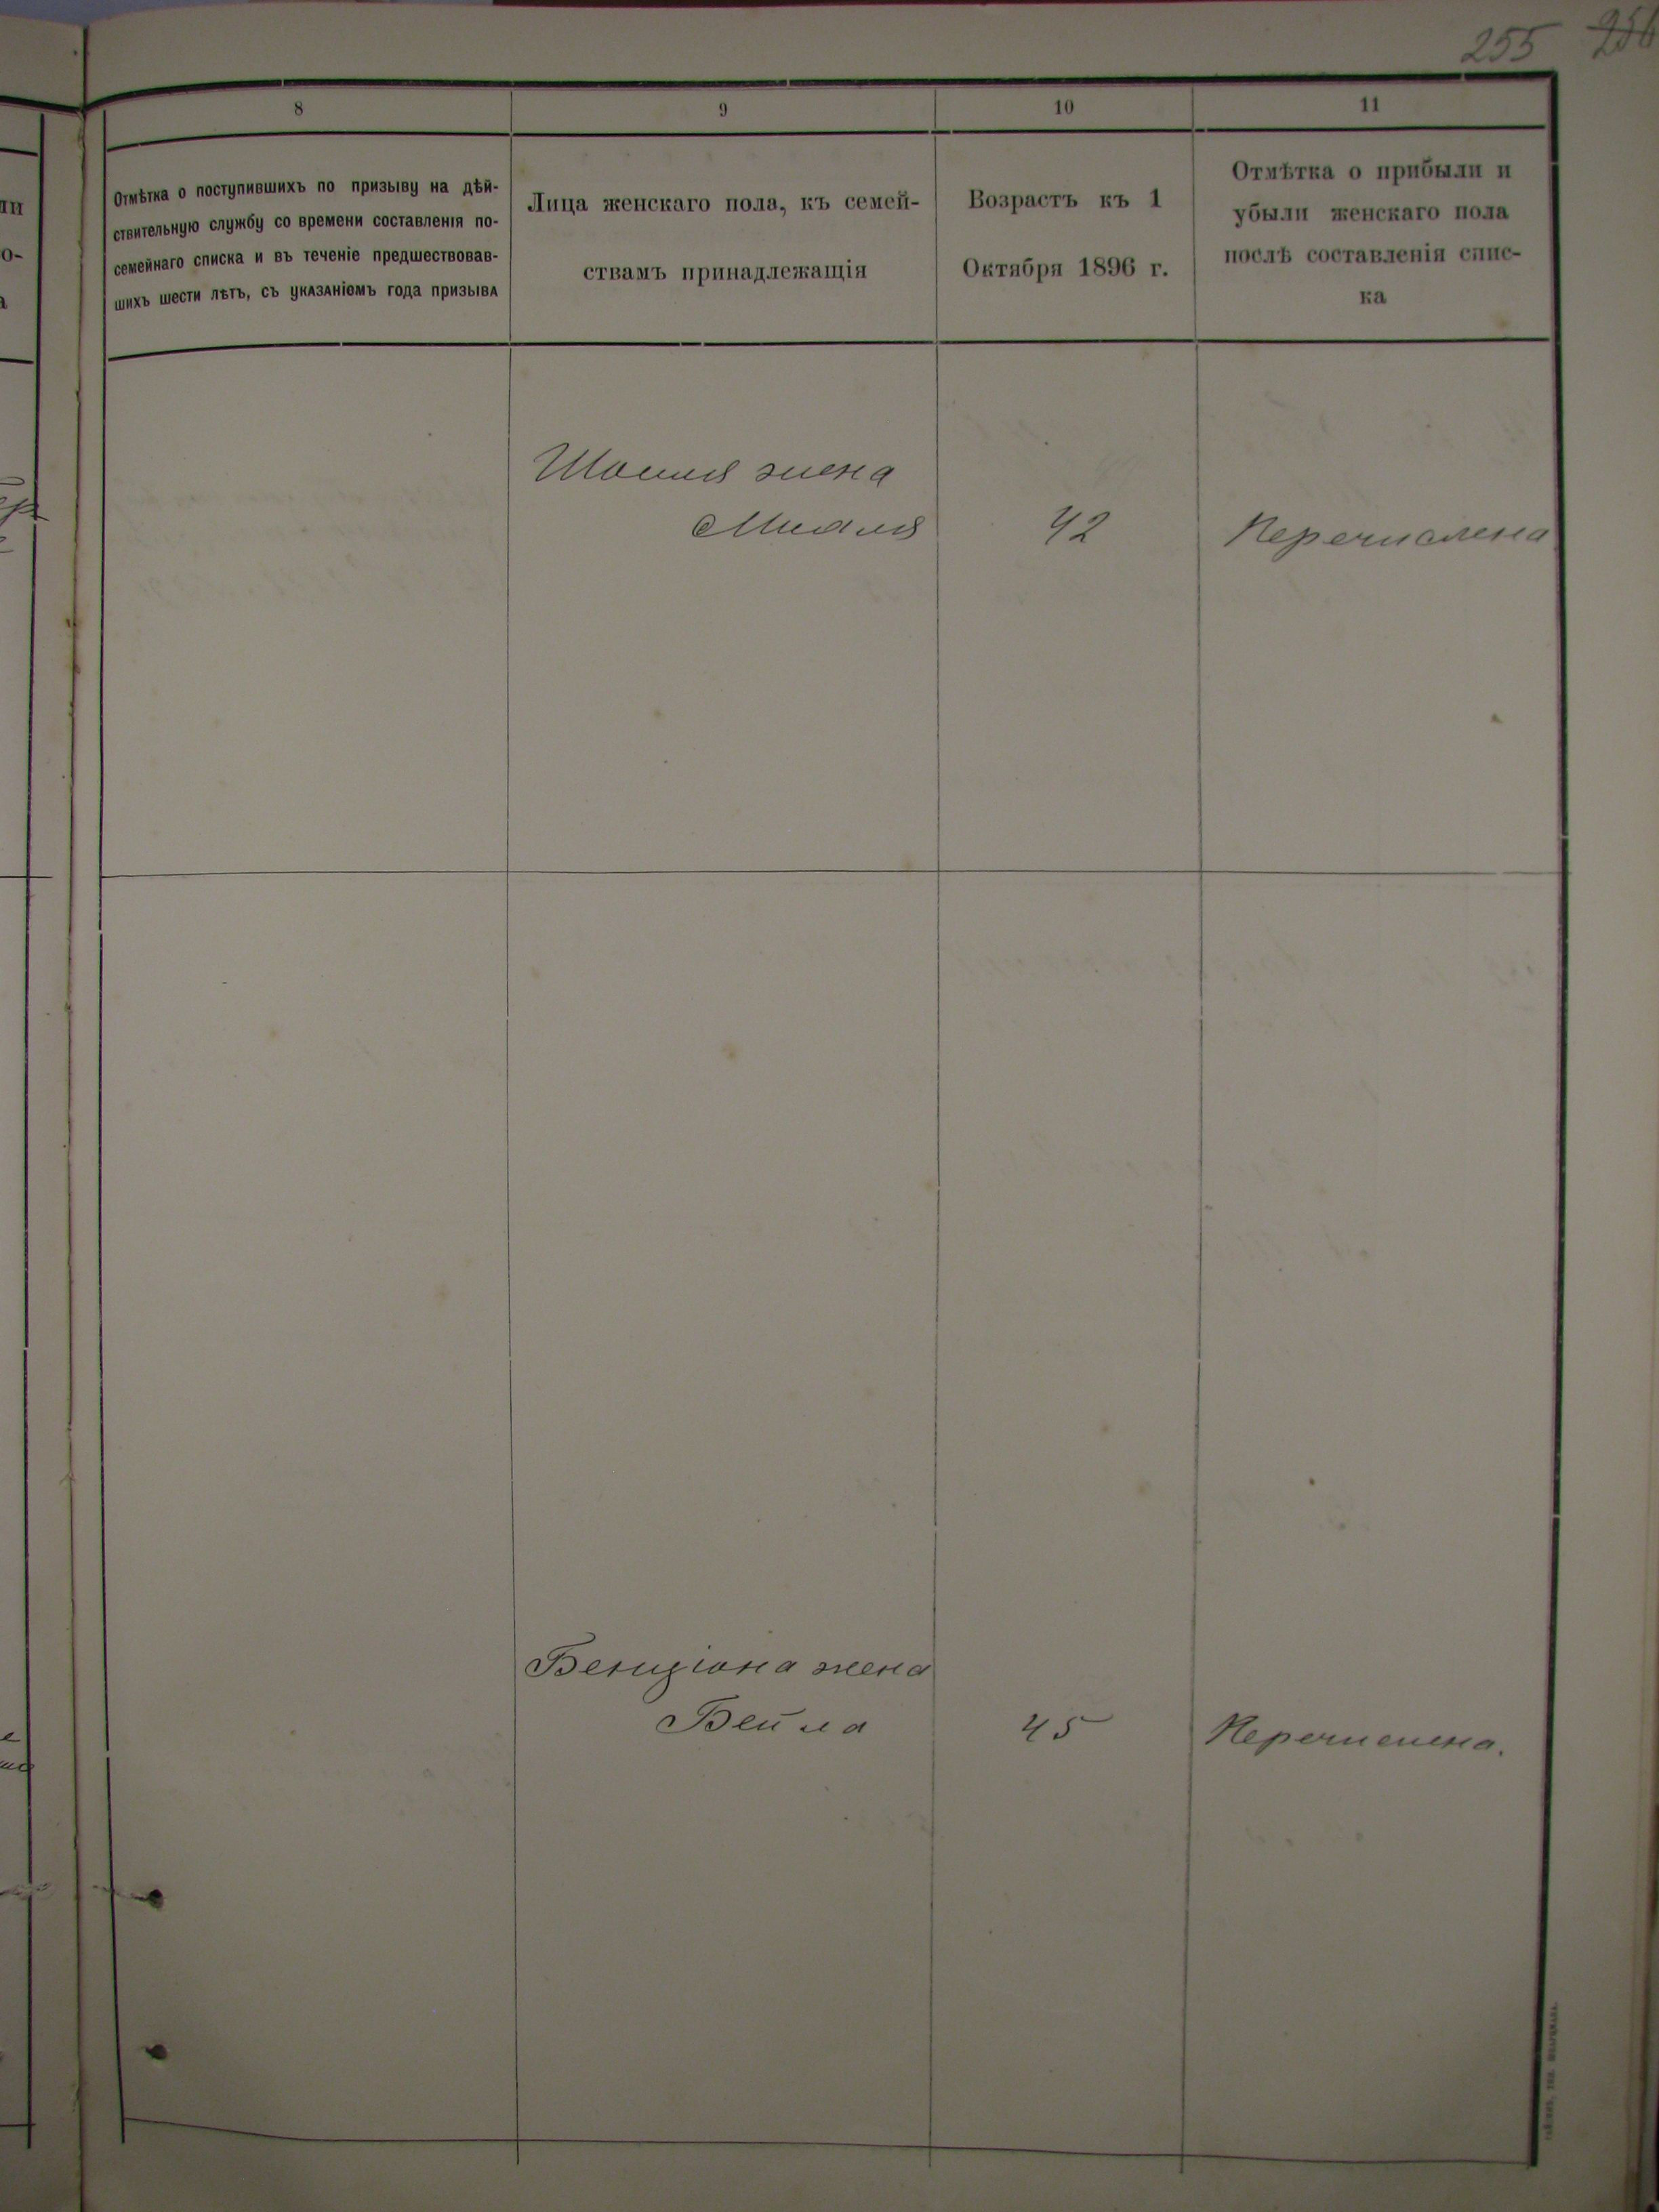 255 256
8 9 10 11
Отмѣтка о поступившихъ по призыву на дѣй-
ствительную службу со времени составленія по-
семейнаго списка и въ теченіе предшествовав-
шихъ шести лѣтъ, съ указаніемъ года призыва
Лица женскаго пола, къ семей-
ствамъ принадлежащія
Возрастъ къ 1
Октября 1896 г.
Отмѣтка о прибыли и
убыли женскаго пола
послѣ составленія спис-
ка
жена
42 Перечислена
Бенціона жена
Бейла 45 Перечислена.